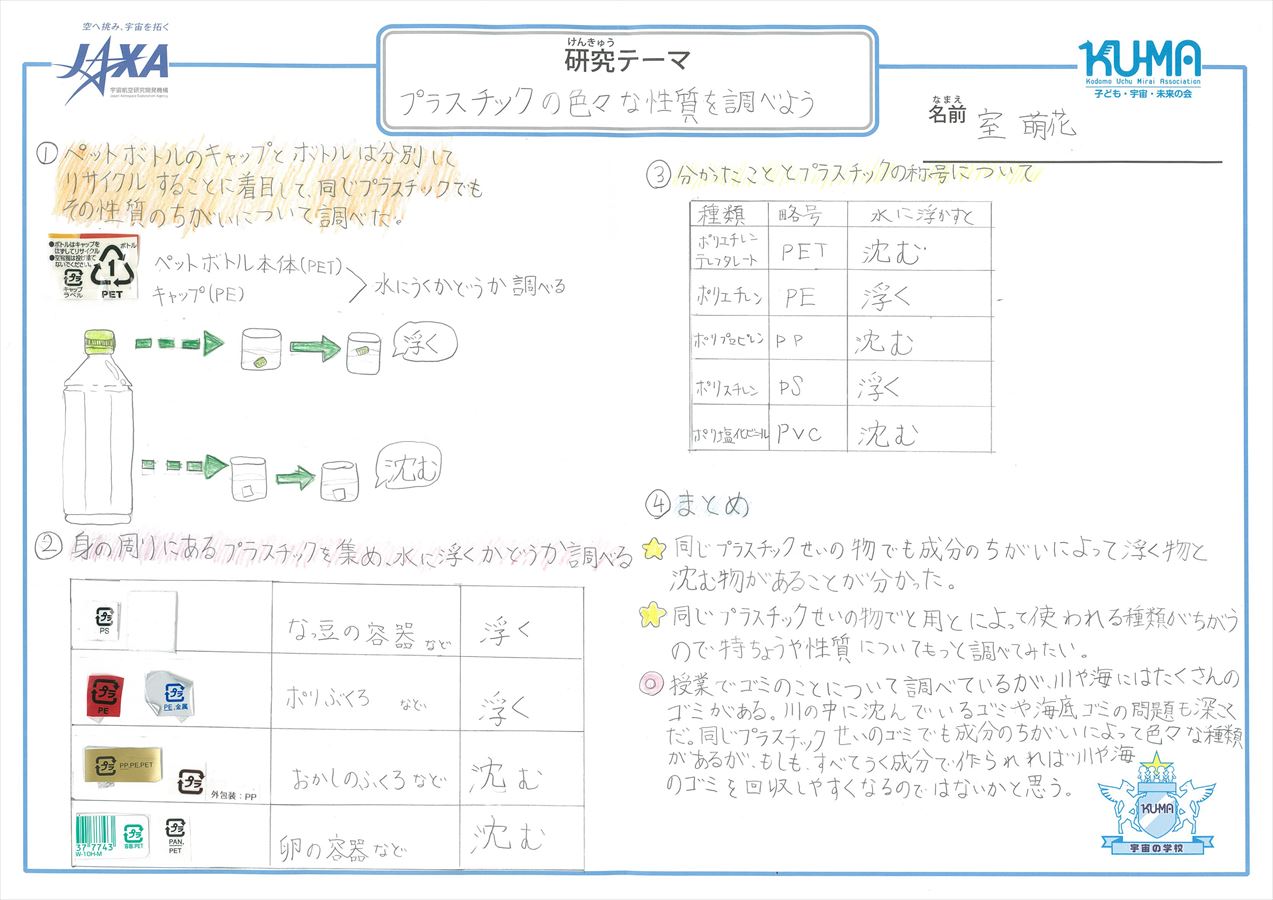 空へ挑み、宇宙を拓く
JAXA
宇宙航空研究開発機構
Japan Aerospace Exploration Agency
けんきゅう
研究テーマ
プラスチックの色々な性質を調べよう
KU-MA
Kodomo Uchu Mirai Association
子ども・宇宙・未来の会
なまえ
名前 室 萌花
① ペットボトルのキャップとボトルは分別して
リサイクルすることに着目して、同じプラスチックでも
その性質のちがいについて調べた。
●ボトルはキャップを
はずしてリサイクル
●空容器は投げ捨て
ないでください。
プラ
キャップ
ラベル
ボトル
1
PET
ペットボトル本体(PET)
キャップ(PE)
水にうくかどうか調べる
浮く
沈む
② 身の周りにあるプラスチックを集め、水に浮くかどうか調べる
プラ
PS
なっ豆の容器 など 浮く
プラ
PE
プラ
PE,金属
ポリぶくろ など 浮く
プラ PP,PE,PET
プラ 外包装:PP
おかしのふくろなど 沈む
37 7743
W-10H-M
プラ
容器:PET
プラ
PAN,
PET
卵の容器など 沈む
③ 分かったこととプラスチックの称号について
種類 略号 水に浮かすと
ポリエチレン
テレフタレート PET 沈む
ポリエチレン PE 浮く
ポリプロピレン PP 沈む
ポリスチレン PS 浮く
ポリ塩化ビニール PVC 沈む
④ まとめ
同じプラスチックせいの物でも成分のちがいによって浮く物と
沈む物があることが分かった。
同じプラスチックせいの物でと用とによって使われる種類がちがう
ので特ちょうや性質についてもっと調べてみたい。
授業でゴミのことについて調べているが、川や海にはたくさんの
ゴミがある。川の中に沈んでいるゴミや海底ゴミの問題も深こく
だ。同じプラスチックせいのゴミでも成分のちがいによって色々な種類
があるが、もしも、すべてうく成分で作られれば川や海
のゴミを回収しやすくなるのではないかと思う。
KU-MA
宇宙の学校